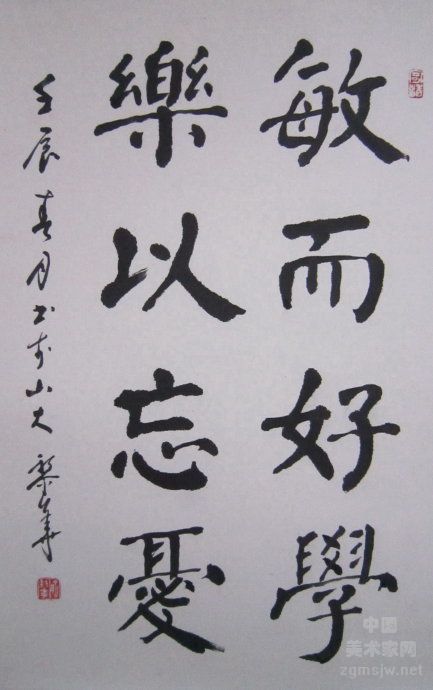 敏而好學
樂以忘憂
壬辰春月書於山大
中国
美术家网
zgmsjw.net